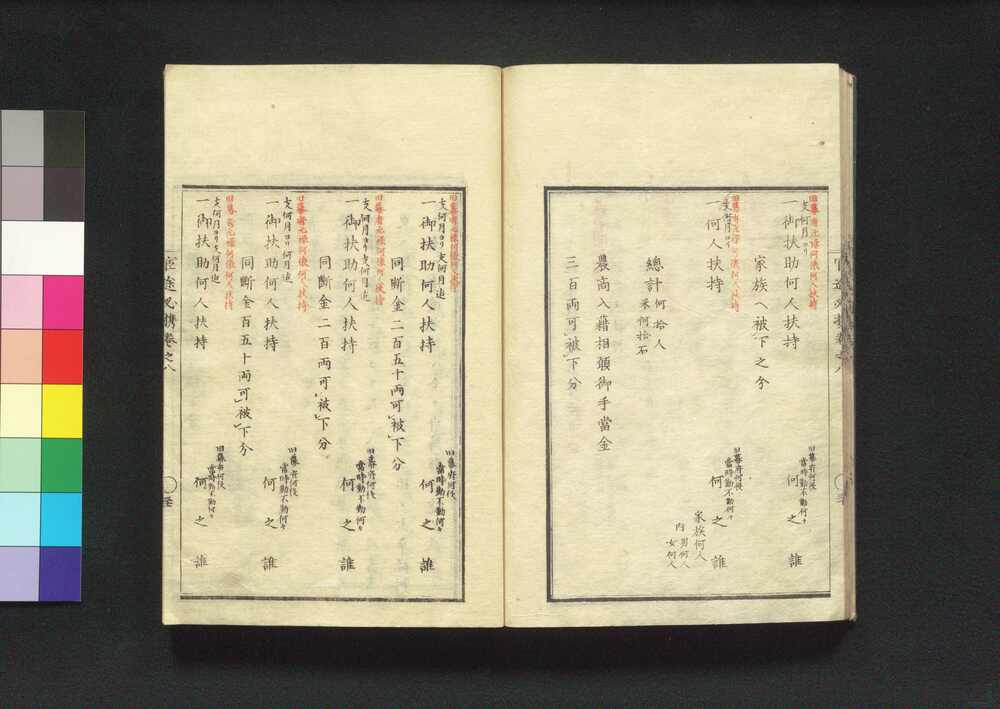 旧幕府元禄何俵何人扶持
支何月ヨリ
一御扶助何人扶持
旧幕府何役
當時勤不勤何々
何之誰
家族ヘ被下之分
旧幕府元禄何俵何人扶持
支何月ヨリ
一何人扶持
旧幕府何役
當時勤不勤何々
何之誰
家族何人
内男何人
女何人
総計何拾人
米何拾石
農商入籍相願御手當金
三百両可被下分
旧幕府元禄何俵何人扶持
支何月ヨリ支何月迄
一御扶助何人扶持
旧幕府何役
當時勤不勤何々
何之誰
同断金二百五十両可被下分
旧幕府元禄何俵何人扶持
支何月ヨリ支何月迄
一御扶助何人扶持
旧幕府何役
當時勤不勤何々
何之誰
同断金二百両可被下分
旧幕府元禄何俵何人扶持
支何月ヨリ何月迄
一御扶助何人扶持
旧幕府何役
當時勤不勤何々
何之誰
同断金百五十両可被下分
旧幕府元禄何俵何人扶持
支何月ヨリ支何月迄
一御扶助何人扶持
旧幕府何役
當時勤不勤何々
何之誰
官途必携巻之八